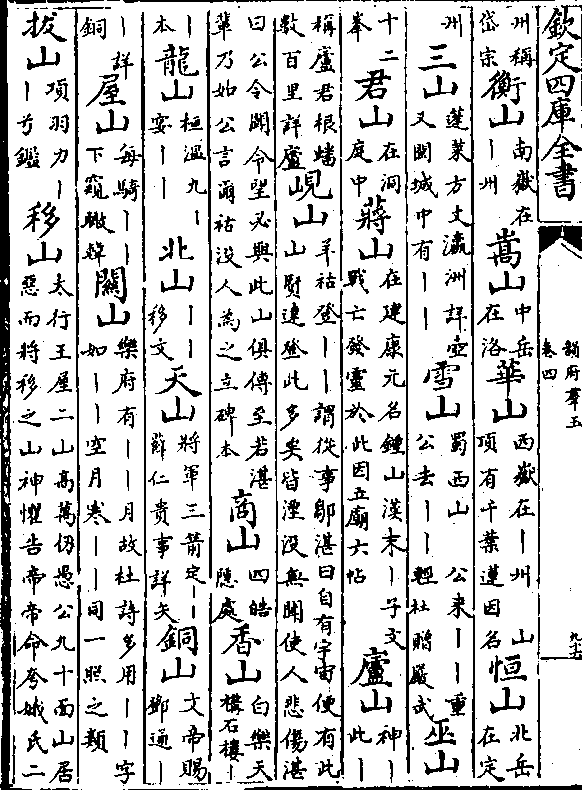 欽定四庫全書
韻府羣玉
卷四
州稱岱宗衡山南嶽在丨州嵩山中岳在洛華山西嶽在丨州山頂有千葉蓮因名恒山北岳在定
州三山蓬萊方丈瀛洲詳壺又閩城中有丨丨雪山蜀西山公來丨丨重公去丨丨輕杜贈嚴武巫山
十二峯君山在洞庭中蔣山在建康元名鍾山漢末丨子文戰亡發靈於此因立廟六帖廬山神丨此丨
稱廬君根蟠數百里詳廬峴山羊祜登丨丨謂從事鄒湛曰自有宇宙便有此山賢達登此多矣皆湮没無聞使人悲傷湛
曰公令聞令望必與此山俱傳至若湛輩乃如公言爾祜没人為之立碑本商山四皓隱處香山白樂天構石樓丨
丨本龍山桓温九丨宴丨丨北山丨丨移文天山將軍三箭定丨丨薛仁貴事詳矢銅山文帝賜鄧通丨
丨詳銅屋山每騎丨丨下窺瞰韓關山樂府有丨丨月故杜詩多用丨丨字如丨丨空月寒丨丨同一照之類
拔山項羽力丨丨兮鑑移山太行王屋二山高萬仞愚公九十面山居惡而將移之山神懼告帝帝命夸娥氏二